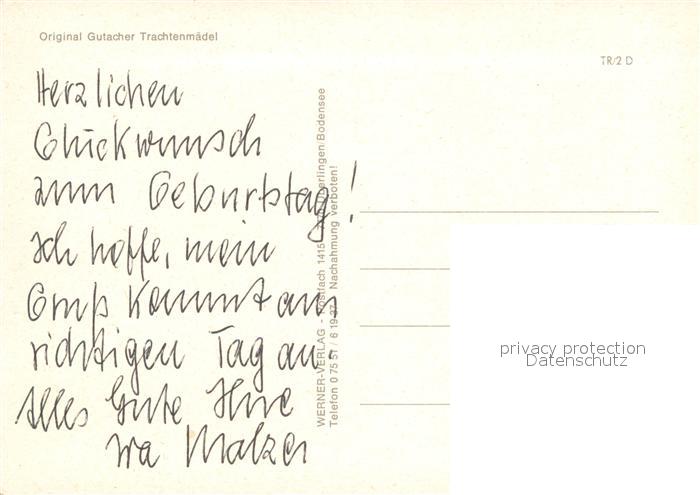 Original Gutacher Trachtenmädel
TR/2 D
Herzlichen
Glückwunsch
zum Geburtstag!
Ich hoffe, mein
Gruß kommt am
richtigen Tag an.
Alles Gute Ihre
Malzer
WERNER-VERLAG - Postfach 1415 Überlingen/Bodensee
Telefon 0 75 51 / 6 19 37 Nachahmung verboten!
privacy protection
Datenschutz